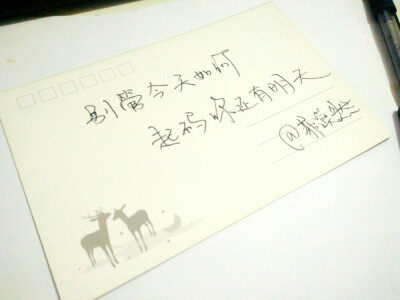 别管今天如何
起码你还有明天